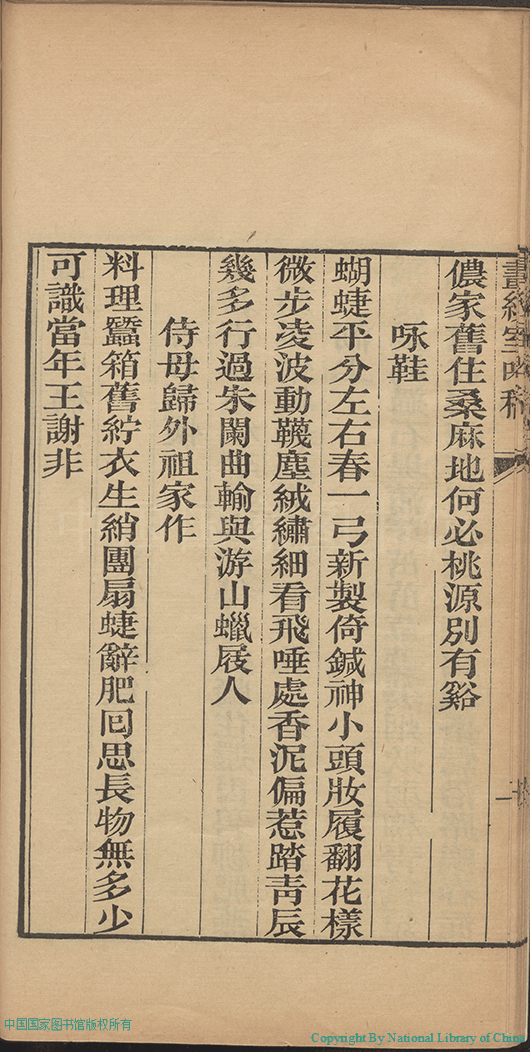 儂家舊住桑麻地何必桃源別有谿
咏鞋
蝴蜨平分左右春一弓新製倚鍼神小頭妝履翻花樣
微步凌波動韈塵絨繡細看飛唾處香泥偏惹踏青辰
幾多行過朱闌曲輸與游山蠟屐人
侍母歸外祖家作
料理蠶箱舊紵衣生綃團扇蜨辭肥囘思長物無多少
可識當年王謝非
中国国家图书馆版权所有
Copyright By National Library of China